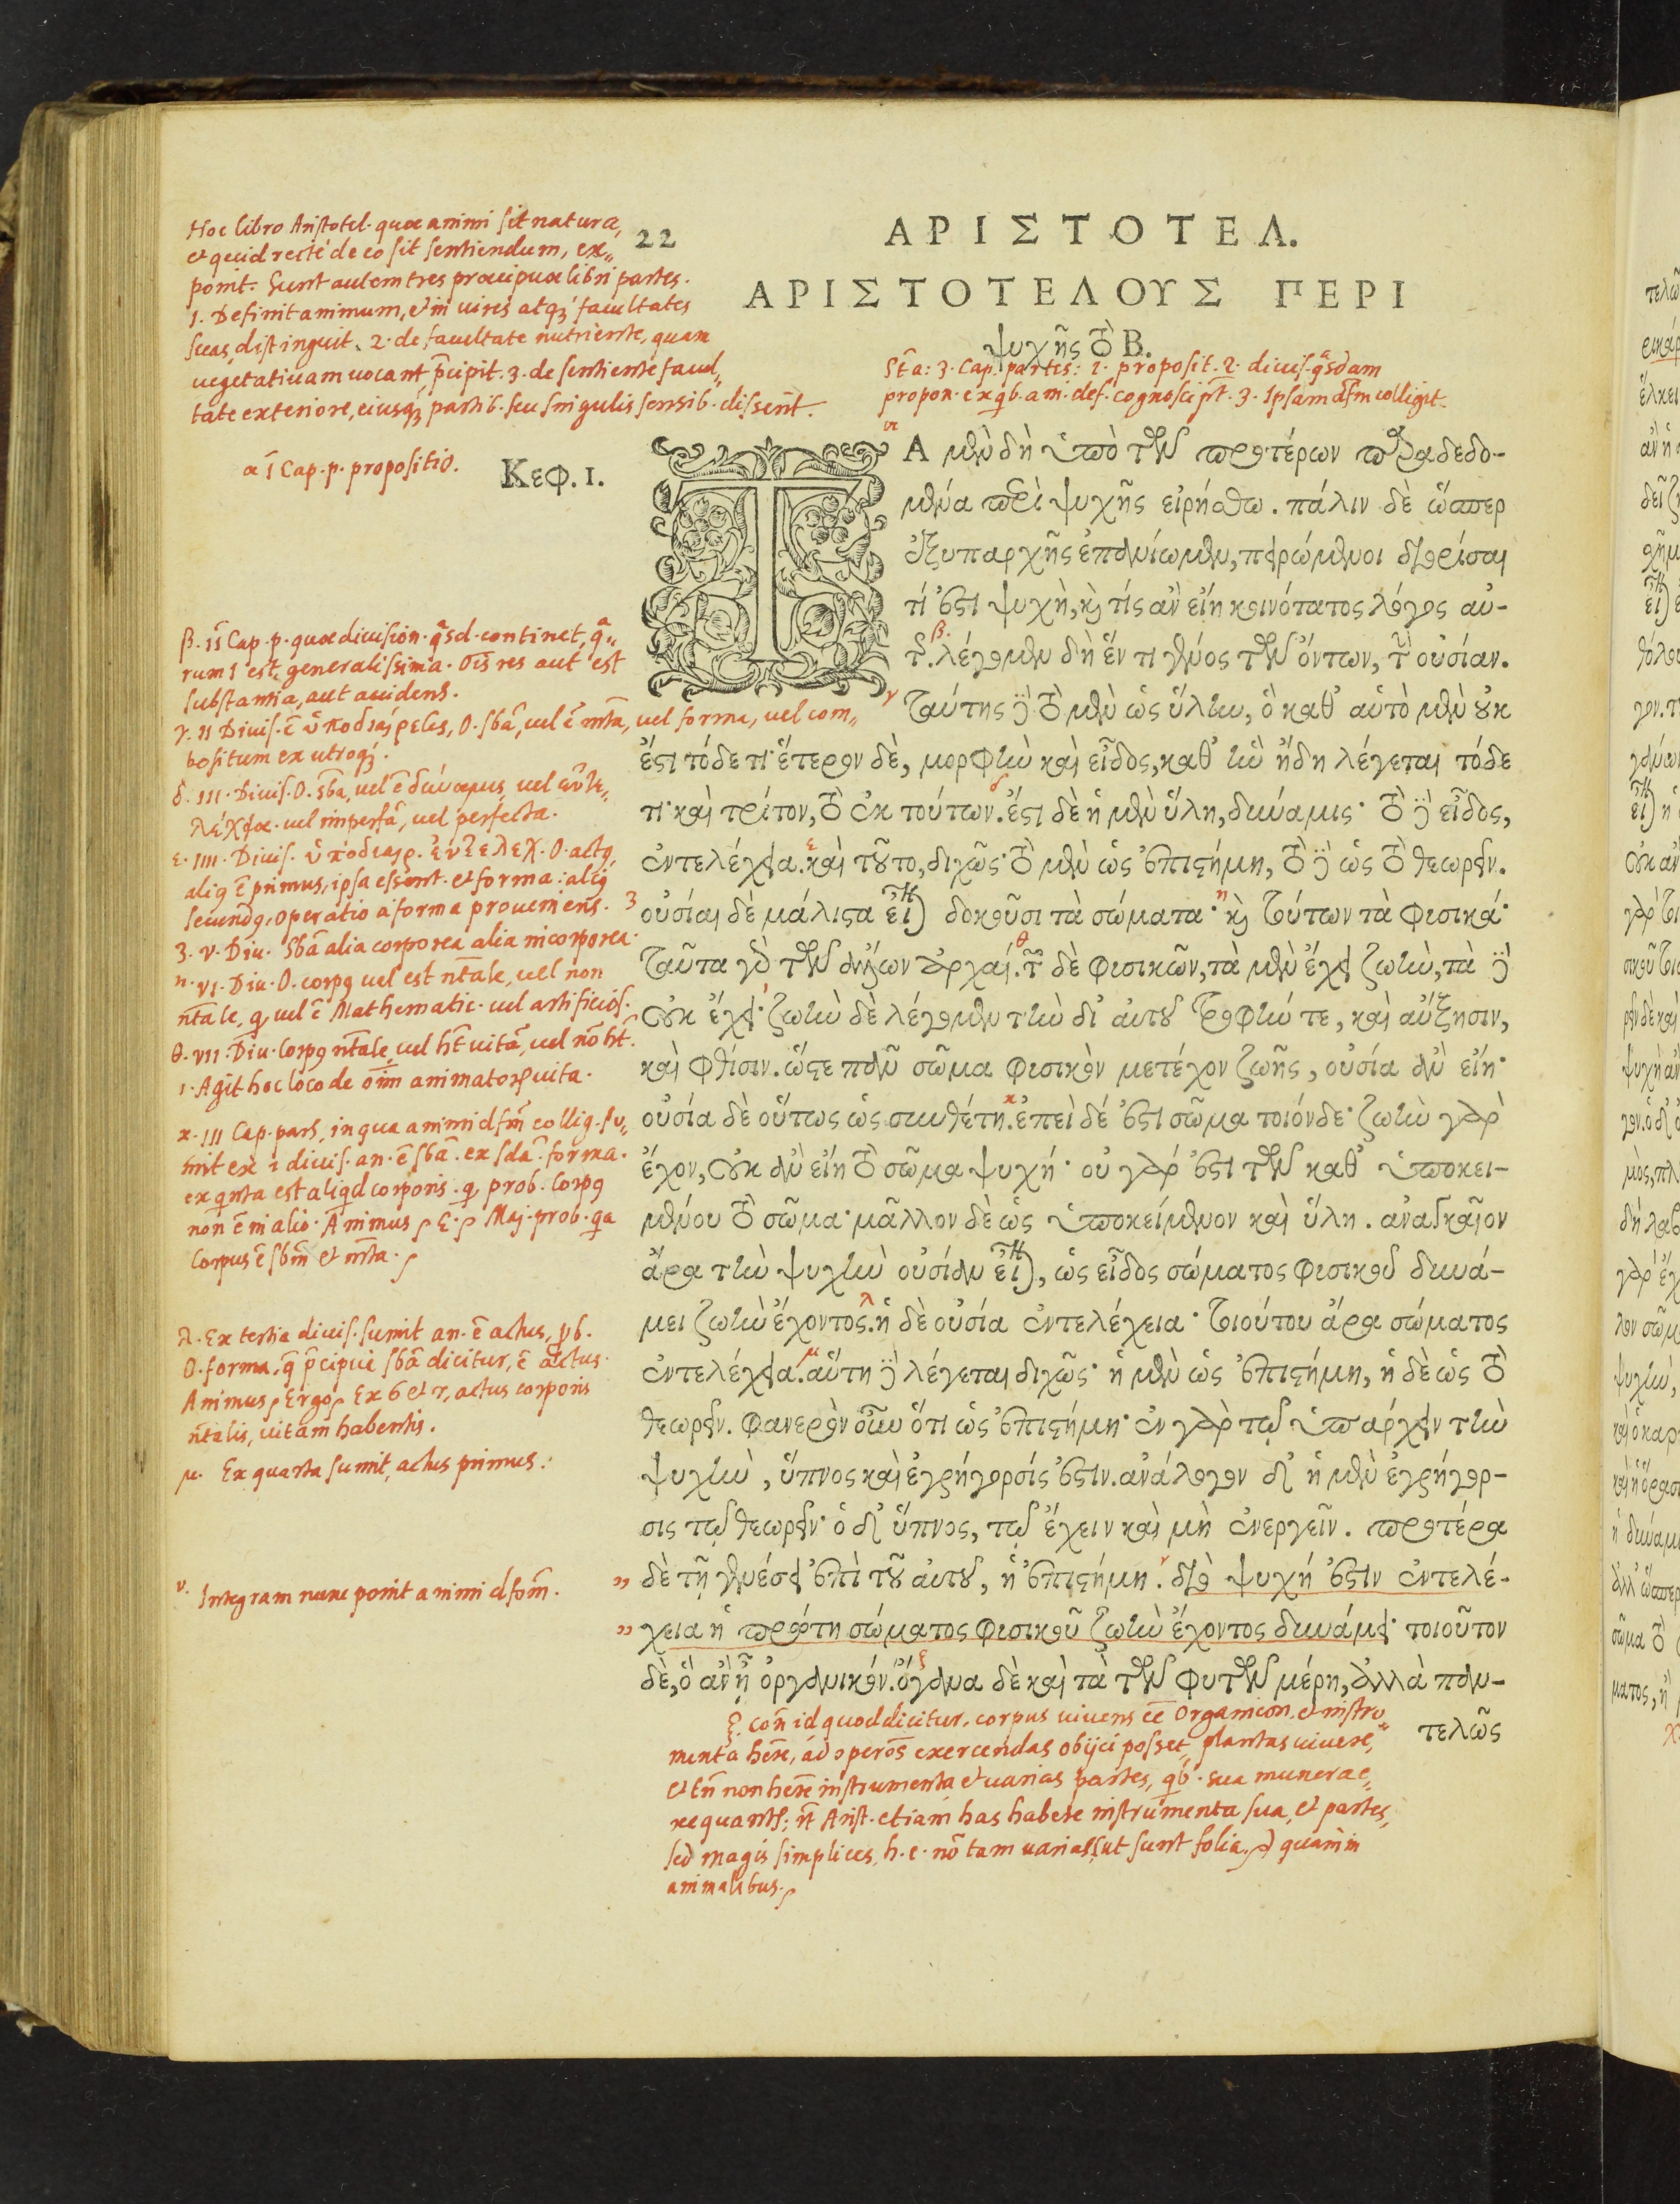 Hoc libro Aristotel. quæ animi sit natura,
et quid recte de eo sit sentiendum, ex„
ponit. Sunt autem tres præcipuæ libri partes.
1. Definit animum, et in vires atq́ȝ facultates
suas distinguit. 2. de facultate nutriente, quam
vegetativam vocant, p̄cipit. 3. de sentiente facul„
tate exteriore, eiusq́ȝ partib. seu singulis sensib. disserit.
22
ΑΡΙΣΤΟΤΕΛ.
ΑΡΙΣΤΟΤΕΛΟΥΣ ΠΕΡΙ
ψυχῆς τὸ Β.
St̄ a: 3. Cap. partes: 1. proposit. 2. divis. qͣsdam
propon. ex qb. am. def. cognosci pt̄. 3. Ipsam dfm colligit.
α ī Cap. p. propositio.
Κεφ. 1.
ΤΑ μὲν δὴ ὑπὸ τῶν προτέρων παραδεδο-
μένα περὶ ψυχῆς εἰρήσθω. πάλιν δὲ ὥσπερ
ἐξυπαρχῆς ἐπανίωμεν, πειρώμενοι διορίσαι
τί ἐστι ψυχὴ, καὶ τίς ἂν εἴη κοινότατος λόγος αὐ-
τῆς. λέγομεν δὴ ἕν τι γένος τῶν ὄντων, τὴν οὐσίαν.
ταύτης δὲ τὸ μὲν ὡς ὕλην, ὃ καθ’ αὑτὸ μὲν οὐκ
ἔστι τόδε τι· ἕτερον δὲ, μορφὴν καὶ εἶδος, καθ’ ἣν ἤδη λέγεται τόδε
τι· καὶ τρίτον, τὸ ἐκ τούτων. ἔστι δὲ ἡ μὲν ὕλη, δύναμις· τὸ δὲ εἶδος,
ἐντελέχεια. καὶ τοῦτο, διχῶς· τὸ μὲν ὡς ἐπιστήμη, τὸ δὲ ὡς τὸ θεωρεῖν.
οὐσίαι δὲ μάλιστα εἶναι δοκοῦσι τὰ σώματα· καὶ τούτων τὰ φυσικά·
ταῦτα γὰρ τῶν ἄλλων ἀρχαί. τῶν δὲ φυσικῶν, τὰ μὲν ἔχει ζωὴν, τὰ δὲ
οὐκ ἔχει· ζωὴν δὲ λέγομεν τὴν δι’ αὐτοῦ τροφήν τε, καὶ αὔξησιν,
καὶ φθίσιν. ὥστε πᾶν σῶμα φυσικὸν μετέχον ζωῆς, οὐσία ἂν εἴη·
οὐσία δὲ οὕτως ὡς συνθέτη. ἐπεὶ δέ ἐστι σῶμα τοιόνδε· ζωὴν γὰρ
ἔχον, οὐκ ἂν εἴη τὸ σῶμα ψυχή· οὐ γάρ ἐστι τῶν καθ’ ὑποκει-
μένου τὸ σῶμα· μᾶλλον δὲ ὡς ὑποκείμενον καὶ ὕλη. ἀναγκαῖον
ἄρα τὴν ψυχὴν οὐσίαν εἶναι, ὡς εἶδος σώματος φυσικοῦ δυνά-
μει ζωὴν ἔχοντος. ἡ δὲ οὐσία ἐντελέχεια· τοιούτου ἄρα σώματος
ἐντελέχεια. αὕτη δὲ λέγεται διχῶς· ἡ μὲν ὡς ἐπιστήμη, ἡ δὲ ὡς τὸ
θεωρεῖν. φανερὸν οὖν ὅτι ὡς ἐπιστήμη· ἐν γὰρ τῷ ὑπάρχειν τὴν
ψυχὴν, ὕπνος καὶ ἐγρήγορσίς ἐστιν. ἀνάλογον δ’ ἡ μὲν ἐγρήγορ-
σις τῷ θεωρεῖν· ὁ δ’ ὕπνος, τῷ ἔχειν καὶ μὴ ἐνεργεῖν. προτέρα
δὲ τῇ γενέσει ἐπὶ τοῦ αὐτοῦ, ἡ ἐπιστήμη. διὸ ψυχή ἐστιν ἐντελέ-
χεια ἡ πρώτη σώματος φυσικοῦ ζωὴν ἔχοντος δυνάμει· τοιοῦτον
δὲ, ὃ ἂν ᾖ ὀργανικόν. ὄργανα δὲ καὶ τὰ τῶν φυτῶν μέρη, ἀλλὰ παν-
τελῶς
β. ii Cap. p. quæ division. qͣsd. continet, qͣ„
rum 1 est generalissima. Oīs res aut est
substantia, aut accidens.
γ. ii Divis. ē ὑποδιαίρεσις, O. sba, vel ē mta, vel forma, vel com„
positum ex utroq́ȝ.
δ. iii. Divis. O. sba, vel ē δύναμις vel ἐντε„
λέχεια. vel imperfā, vel perfecta.
ε. iiii. Divis. ὑποδιαιρ. ἐντελεχ. O. actꝯ,
aliꝯ ē primus, ipsa essent. et forma: aliꝯ
secundꝯ, operatio a forma proveniens.
ζ. v. Div. Sba alia corporea alia incorporea.
η. vi. Div. O. corpꝯ vel est ntale, vel non
ntale, q vel ē Mathematic. vel artificios.
θ. vii. Div. Corpꝯ ntale, vel ht vitā, vel nō ht.
ι. Agit hoc loco de oim animatoꝝ vita.
κ. iii Cap. pars, in qua animi dfm collig. su„
mit ex 1 divis. an. ē sba. ex sda. forma.
ex qrta est aliqd corporis. q prob. Corpꝯ
non ē in alio. Animus ꝭ E. ꝭ Maj. prob. qa
Corpus ē sbm et mta.
λ. Ex tertia divis. sumit an. ē actus,
O. forma, q̄ p̄cipue sba dicitur, ē actus.
Animus ꝭ Ergo ꝭ Ex 6 et 7, actus corporis
ntalis, vitam habentis.
μ. Ex quarta sumit, actus primus.
ν. Integram nunc ponit animi dfom.
ξ. Con id quod dicitur, corpus vivens ee Organicon, et instru„
menta here, ad operos exercendas obijci posset, plantas vivere,
et tn non here instrumenta et varias partes, qb. sua munera e„
xequantr; nt Arist. etiam has habere instrumenta sua, et partes,
sed magis simplices, h. e. nō tam varias (ut sunt folia ꝛc) quam in
animalibus.